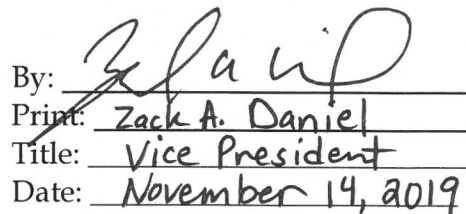 By:
Print: Zack A. Daniel
Title: Vice President
Date: November 14, 2019